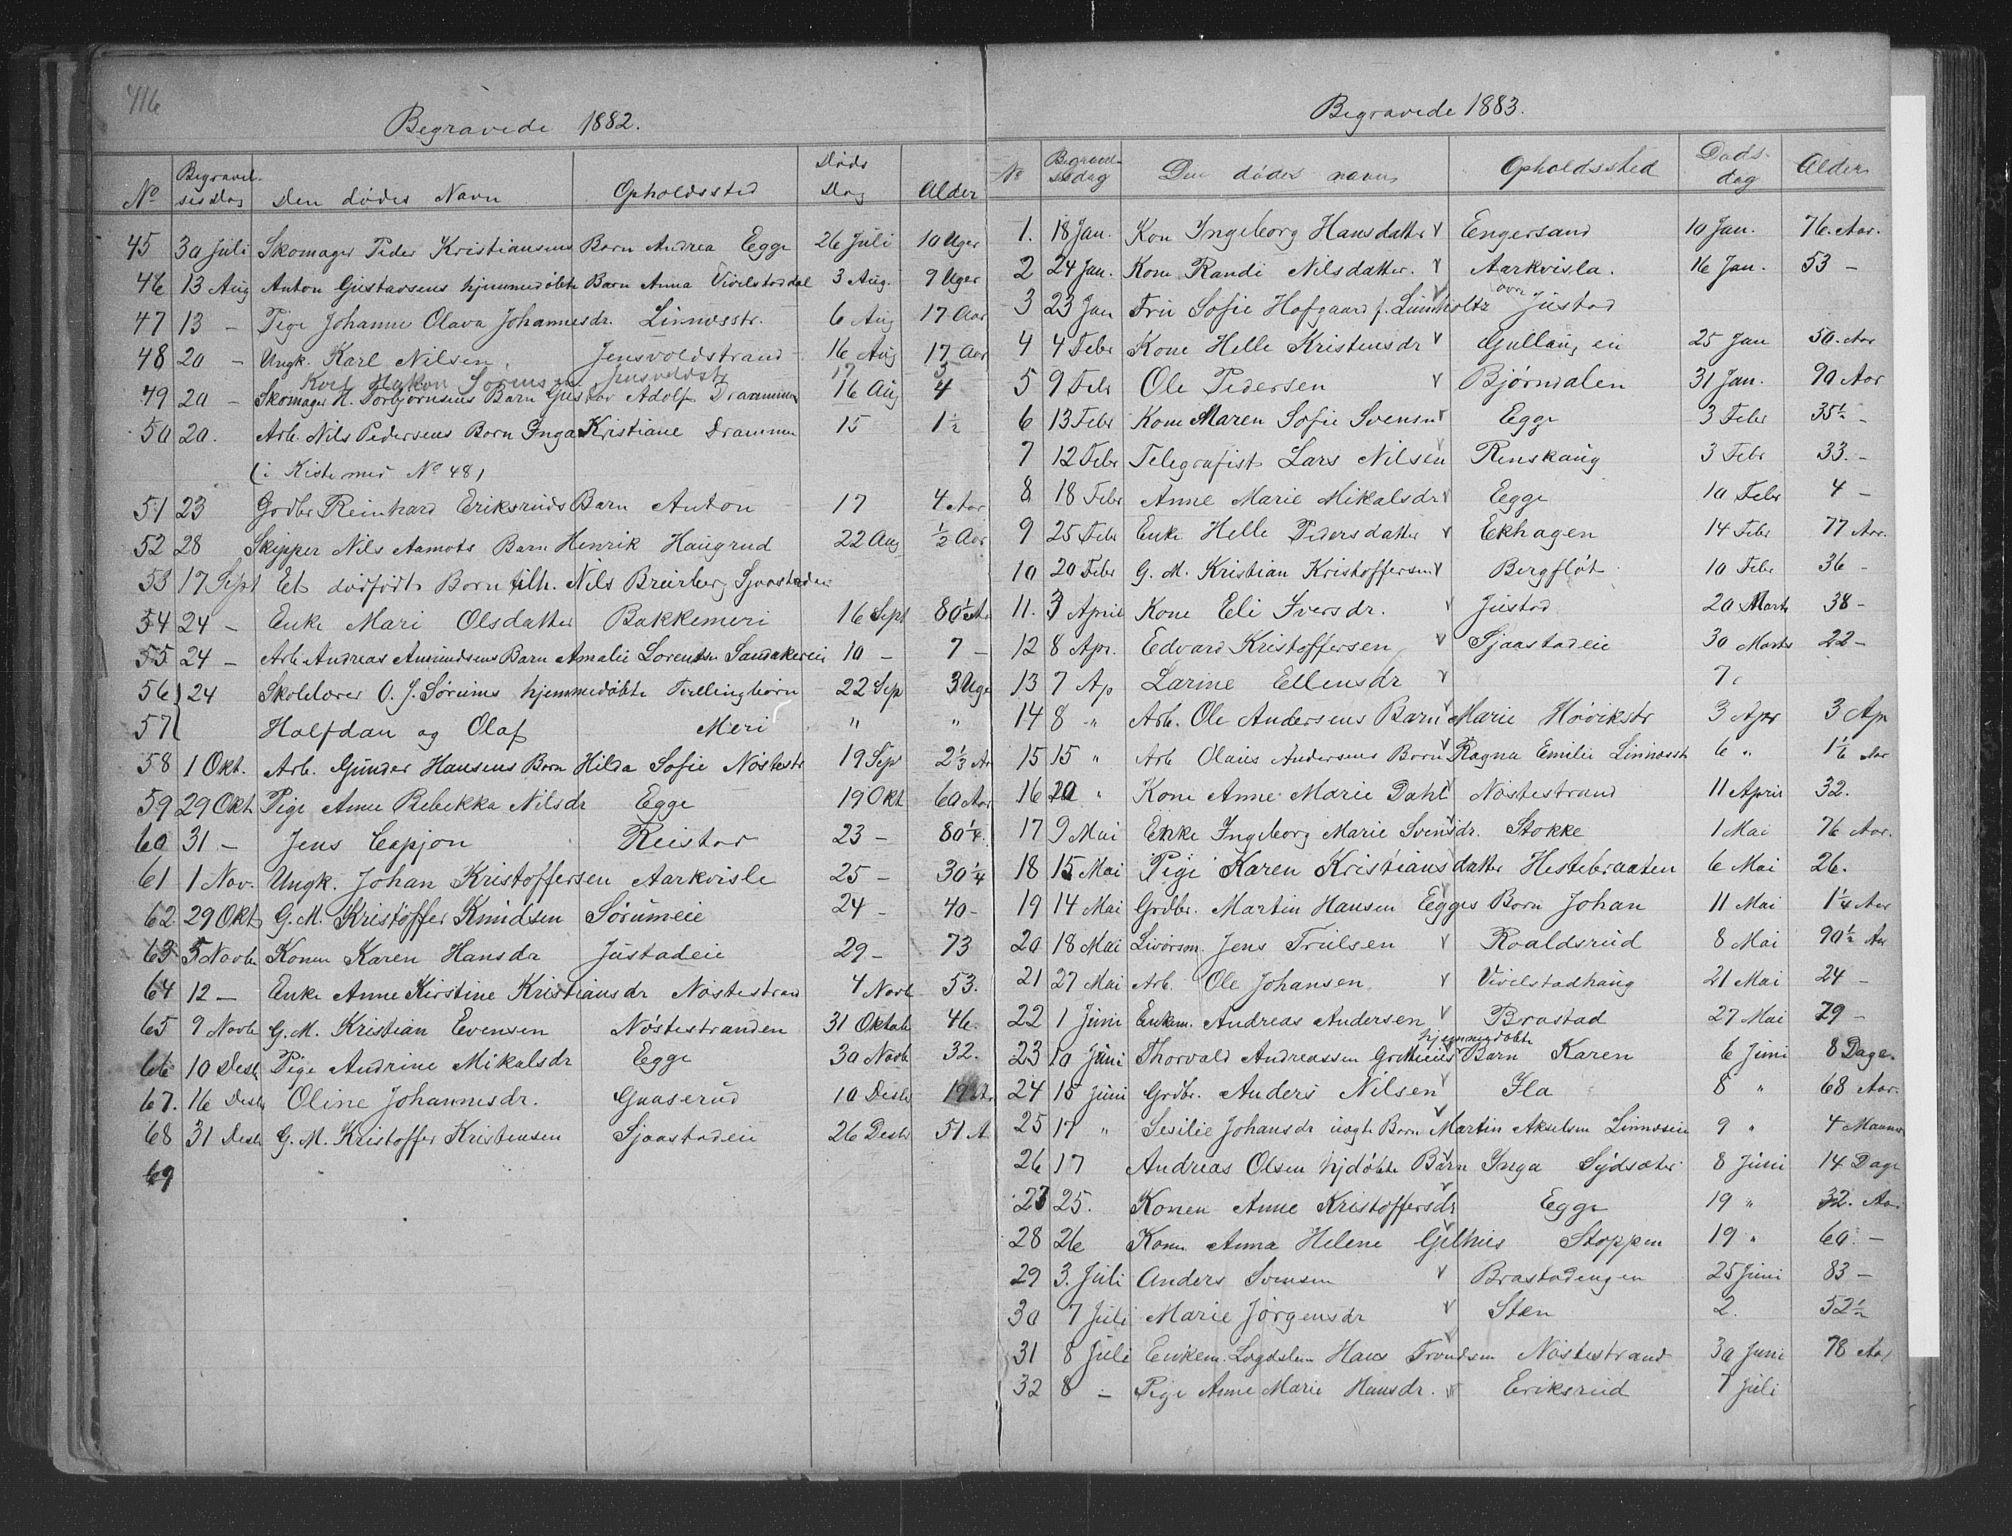 416
Begravede 1882.
No Begravel-sesDag Den dødes Navn Opholdssted Døds Dag Alder
45 30 Juli Skomager Peder Kristiansens Barn Andrea Egge 26 Juli 10 Uger
46 13 Aug Anton Gustavsens hjemmedøbte Barn Anna Vivelstaddal 3 Aug. 9 Uger
47 13 – Pige Johanne Olava Johannesdr. Linnesstr. 6 Aug 17 Aar
48 20 – Ungk. Karl Nilsen. Jensvoldstrand 16 Aug 17 Aar
Karl Hakon Sørensen Jensvoldstr 17 5
49 20 – Skomager H. Torbjørnsens Barn Gustav Adolf Drammen 16 Aug 4
50 20. Arb. Nils Pedersens Barn Inga Kristiane Drammen 15 1½
(i Kiste med No 48)
51 23 Gdbr Reinhard Eriksruds Barn Anton 17 4 Aar
52 28 Skipper Nils Aamots Barn Henrik Haugrud 22 Aug ½ Aar
53 17 Sept Et dødfødt Barn tilh. Nils Breirberg Sjaastadeie
54 24 – Enke Mari Olsdatter Bakkemeri 16 Sept 80½ Aar
55 24 – Arb Andreas Amundsens Barn Amalie Lorentse Sandakereie 10 – 7 –
56 24 Skolelærer O. J. Sørums hjemmedøbte Tvillingbørn 22 Sep 3 Uge
57 Halfdan og Olaf Meri " "
58 1 Okt. Arb. Gunder Hansens Barn Hilda Sofie Nøstestr 19 Sep 2⅓ Aar
59 29 Okt Pige Anne Bebekka Nilsdr Egge 19 Okt 60 Aar
60 31 – Jens Cepjon Reistad 23 – 80¼.
61 1 Nov. Ungk. Johan Kristoffersen Aarkvisle 25 – 30¼
62 29 Okt G. M. Kristoffer Knudsen Sørumeie 24 – 40 –
63 5 Novbr Konen Karen Hansdr Justadeie 29 – 73
64 12 – Enke Anne Kirstine Kristiansdr Nøstestrand 4 Novb 53.
65 9 Novbr G. M. Kristian Evensen Nøstestranden 31 Oktob 46.
66 10 Desb Pige Andrine Mikalsdr Egge 30 Novb 32.
67. 16 Desbr Oline Johannesdr. Gaaserud 10 Desbr 19 Aar
68 31 Desb G. M. Kristoffer Kristensen Sjaastadeie 26 Desbr 51 A
69
Begravede 1883.
No Begravel-sesdag Den dødes navn Opholdssted Døds-dag Alder
1. 18 Jan. Kon Ingeborg Hansdatter v Engersand 10 Jan. 76. Aar.
2 24 Jan. Kone Randi Nilsdatter. v Aarkvisla. 16 Jan. 53 –
3 23 Jan Fru Sofie Hofgaard f. Lumholtz v øvre Justad
4 4 Febr Kone Helle Kristensdr v Gullaugeie 25 Jan 50. Aar
5 9 Febr Ole Pedersen v Bjørndalen 31 Jan. 90 Aar
6 13 Febr Kone Maren Sofie Svensn v Egge 3 Febr 35½ –
7 12 Febr Telegrafist Lars Nilsen v Renskaug 3 Febr 33. –
8 18 Febr Anne Marie Mikalsdr v Egge 10 Febr 4 –
9 25 Febr Enke Helle Pedersdatter v Ekhagen 14 Febr 77 Aar.
10 20 Febr G. M. Kristian Kristoffersen v Bergfløt 10 Febr 36 –
11. 3 April Kone Eli Iversdr. v Justad 20 Marts 38 –
12 8 Apr. Edvard Kristoffersen v Sjaastadeie 30 Marts 22 –
13 7 Ap Larine Ellensdr v 7.
14 8 – " – Arb. Ole Andersens Barn v Marie Høvikstr 3 Apr 3 Ap
15 15 " Arb Olaus Andersens Barn v Ragna Emilie Linnesstr 6 " 1⅙ Aar
16 20 " Kone Anne Marie Dahl v Nøstestrand 11 April 32.
17 9 Mai Enke Ingeborg Marie Svensdr. v Stokke 1 Mai 76 Aar.
18 15 Mai Pige Karen Kristiansdatter v Hestebraaten 6 Mai 26.
19 14 Mai Grdbr. Martin Hansen Egges v Barn Johan 11 Mai 1¼ Aar
20 18 Mai Livørsm. Jens Trulsen v Roaldsrud 8 Mai 90½ Aar
21 27 Mai Arb. Ole Johansen v Vivelstadhaug 21 Mai 24 –
22 1 Juni Enkem. Andreas Andersen v Brastad 27 Mai 79 –
23 10 Juni Thorvald Andreassen Grotheies hjemmedøbte Barn Karen 6 Juni 8 Dage.
24 15 Juni Grdbr. Anders Nilsen v Ila 8 " 68 Aar.
25 17 " Sesilie Johansdr uægte Barn v Martin Akselsen Linneseie 9 " 4 Maaned
26 17 Andreas Olsen hjdøbte Barn v Inga Sydsæter 8 Juni 14 Dage
27 25. Konen Anne Kristoffersdr v Egge 19 " 32. Aar
28 26 Kone Anna Helene Gjelhus v Stoppen 19 " 60. –
29 3. Juli Anders Svensen v Brastadengen 25 Juni 83 –
30 7 Juli Marie Jørgensdr v Sten 2. 52½
31 8 Juli Enkem. Logdslem Hans Trondsen v Nøstestrand 30 Juni 78 Aar
32 8 – Pige Anne Marie Hansdr. v Eriksrud 7 Juli